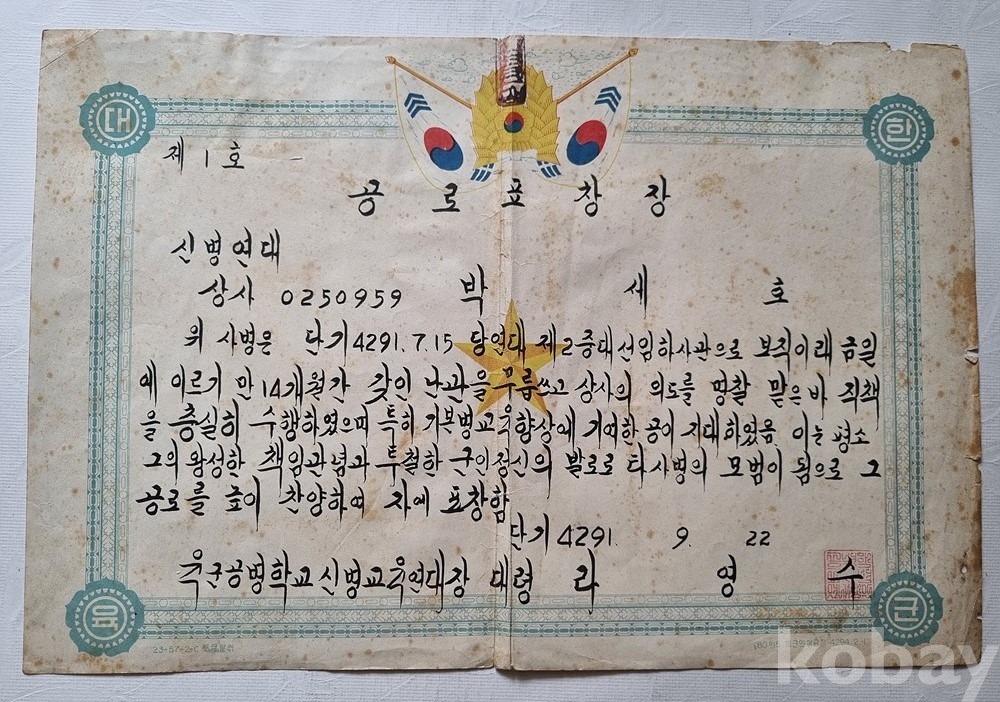 대 한
제 1 호
공 로 표 창 장
신병연대
상사 0250959 박 세 호
위 사병은 단기 4291. 7. 15 당연대 제2중대 선임하사관으로 보직이래 금일
에 이르기 만 14개월간 갖인 난관을 무릅쓰고 상사의 의도를 명찰 맡은바 직책
을 충실히 수행하였으며 특히 기본병교육향상에 기여한 공이 지대하였음 이는 평소
그의 왕성한 책임관념과 투철한 군인정신의 발로로 타사병의 모범이 됨으로 그
공로를 높이 찬양하여 자에 표창함
단기 4291. 9. 22
육군공병학교신병교육연대장 대령 라 영 수
육 군
23-57-2-C
kobay